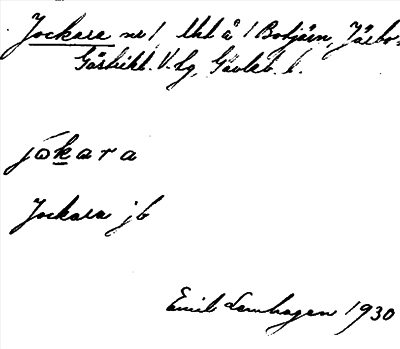 Jockara nr 1, lht å 1 Bobjörn, Järbo
Gästrikl. V. lg, Gävleb. l.
jókara
Jockara jb
Emil Lennhagen 1930